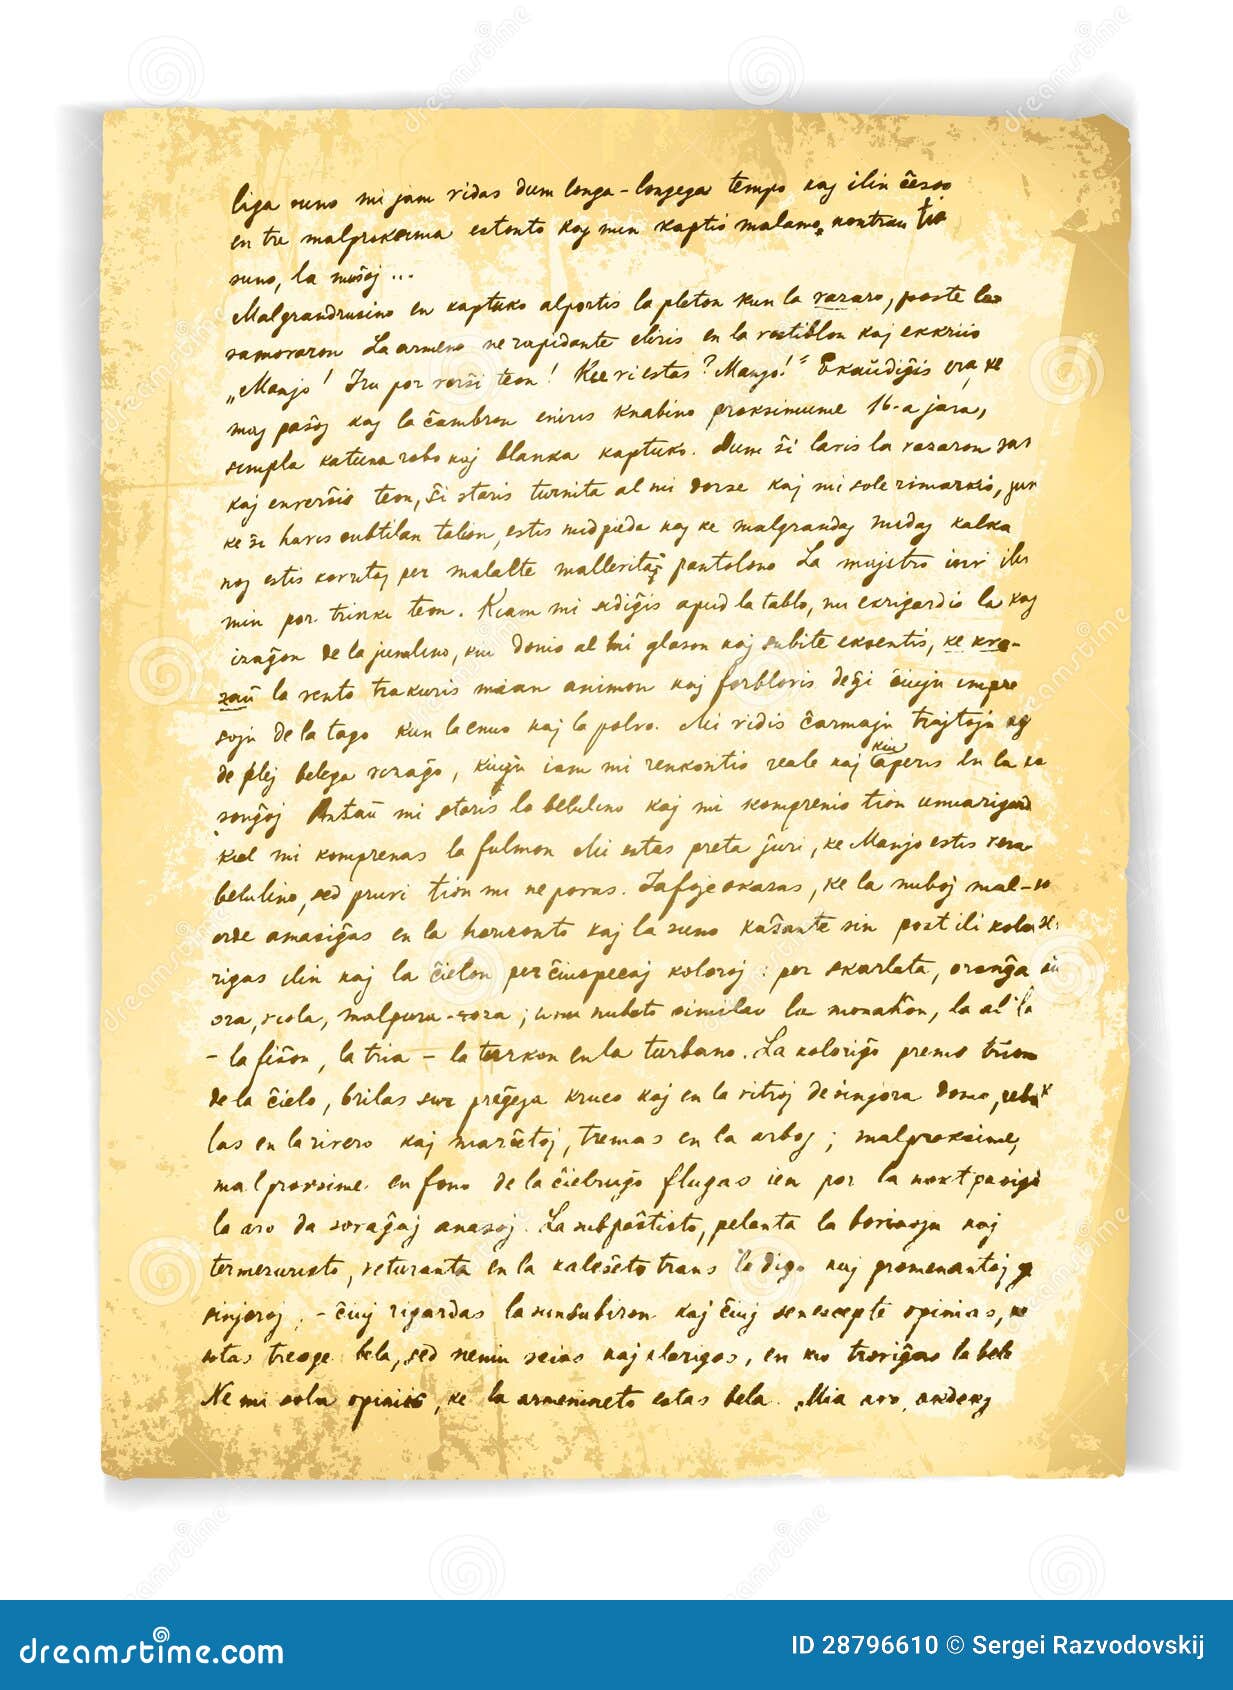 liga suno mi jam vidas dum longa-longega tempo kaj ilin ĉeso
en tre malproksima estonto kaj min kaptis malamo kontraŭ tia
suno, la muŝoj ...
Malgrandrusino en kaptuko alportis la pleton kun la vazaro, poste la
samovaron La armeno ne rapidante eliris en la vestiblon kaj ekkriis
„Manjo! Iru por verŝi teon! Kie vi estas? Manjo!" Ekaŭdiĝis
paŝoj kaj la ĉambron eniris knabino proksimume 16-a jara,
simpla katuna robo kaj blanka kaptuko. Dum ŝi lavis la vazaron
kaj enverŝis teon, ŝi staris turnita al mi dorse kaj mi sole rimarkis,
ke ŝi havis subtilan talion, estis nudpieda kaj ke malgrandaj nudaj kalka
noj estis kovritaj per malalte mallevitaj pantalono La majstro invitis
min por trinki teon. Kiam mi sidiĝis apud la tablo, mi ekrigardis la
vizaĝon de la junulino, kiu donis al mi glason kaj subite eksentis, ke kva-
zaŭ la vento trakuris mian animon kaj forblovis deĝi ĉiujn impre
sojn de la tago kun la enuo kaj la polvo. Mi vidis ĉarmajn trajtojn
de plej belega vizaĝo, kiujn iam mi renkontis reale kaj kiu aperis en la
sonĝoj Antaŭ mi staris la belulino kaj mi komprenis tion unuarigard
kiel mi komprenas la fulmon Mi estas preta ĵuri, ke Manjo estis vera
belulino, sed pruvi tion mi ne povas. Iafoje okazas, ke la nuboj mal-
orde amasiĝas en la horizonto kaj la suno kaŝante sin post ili kolo
rigas ilin kaj la ĉielon per ĉiuspecaj koloroj: per skarlata, oranĝa
ora, viola, malpura-roza; unu nubeto similas la monaĥon, la alia
- la fiŝon, la tria - la turkon en la turbano. La koloriĝo
de la ĉielo, brilas sur preĝeja kruco kaj en la vitroj de sinjora domo,
las en la rivero kaj marĉetoj, tremas en la arboj; malproksime,
malproksime en fono de la ĉielruĝo flugas ien por la noktpasigo
la aro da sovaĝaj anasoj. La subpaŝtisto, pelanta la bovinojn kaj
termezuristo, veturanta en la kaleŝeto trans la digo kaj promenantaj
sinjoroj, - ĉiuj rigardas la sunsubiron kaj ĉiuj senescepte opinias, ke
estas treege bela, sed neniu scias kaj klarigas, en kio troviĝas la belo
Ne mi sola opiniis, ke la armenineto estas bela. „Mia avo,
dreamstime.com
ID 28796610 © Sergei Razvodovskij